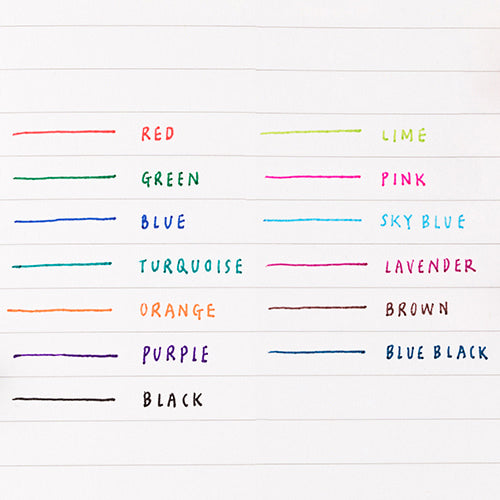 RED
GREEN
BLUE
TURQUOISE
ORANGE
PURPLE
BLACK
LIME
PINK
SKY BLUE
LAVENDER
BROWN
BLUE BLACK